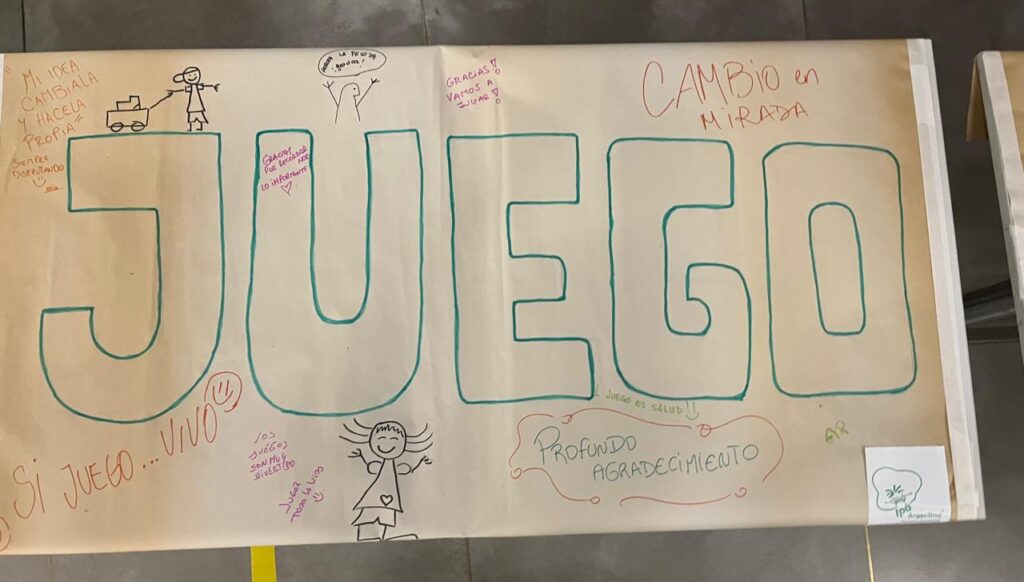 "MI IDEA
CAMBIALA
Y HACELA
PROPIA"
SIEMPRE
DISFRUTANDO
LA PELOTA
GRACIAS!
VAMOS A
JUGAR!
CAMBIO en
MIRADA
JUEGO
GRACIAS
POR RECORDAR
NOS
LO IMPORTANTE
SI JUEGO... VIVO
LOS
JUEGOS
SON MUY
DIVERTIDO
JUGAR
TODA LA VIDA
L JUEGO ES SALUD!!
PROFUNDO
AGRADECIMIENTO
AR
ipa
Argentina